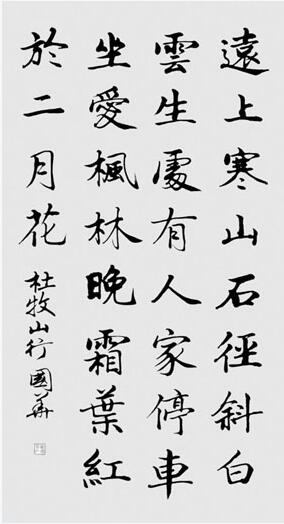 遠上寒山石徑斜白
雲生處有人家停車
坐愛楓林晚霜葉紅
於二月花
杜牧山行國華